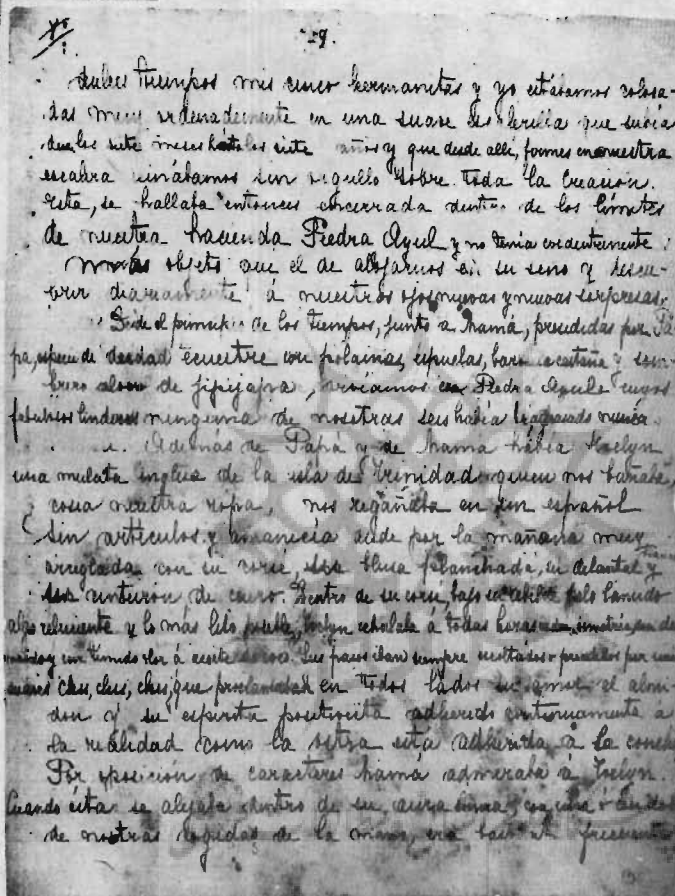 29.
dulces tiempos mis cinco hermanitas y yo estábamos coloca-
das muy ordenadamente en una suave escalerilla que subía
desde los siete meses hasta los siete años y que desde allí, formes en nuestra
escalera reinábamos sin orgullo sobre toda la Creación.
Esta, se hallaba entonces encerrada dentro de los límites
de nuestra hacienda Piedra Azul y no tenía evidentemente
más objeto que el de alojarnos en su seno y descu-
brir diariamente á nuestros ojos nuevas y nuevas sorpresas.
Desde el principio de los tiempos, junto a Mamá, presididas por Pa-
pá, especie de deidad ecuestre con polainas, espuelas, barba castaña y som-
brero alón de jipijapa, vivíamos en Piedra Azul cuyos
fabulosos linderos ninguna de nosotras seis había traspasado nunca.
Además de Papá y de Mamá había Evelyn
una mulata inglesa de la isla de Trinidad quien nos bañaba,
cosía nuestra ropa, nos regañaba en un español
sin artículos y amanecía desde por la mañana muy
arreglada con su corsé, su blusa planchada, su delantal y
su cinturón de cuero. Dentro de su corsé, bajo su pelo lanudo
algo reluciente y lo más liso posible, Evelyn exhalaba á todas horas
y un tímido olor á aceite de coco. Sus pasos iban siempre escoltados o precedidos por unos
suaves chss, chss, chss, que proclamaban en todos lados su amor al almi-
dón y su espíritu positivista adherido continuamente a
la realidad como la ostra está adherida á la concha
Por oposición de caracteres Mamá admiraba á Evelyn.
Cuando ésta se alejaba dentro de su aura sonora, con una ó dos
de nosotras cogidas de la mano, era bastante frecuente